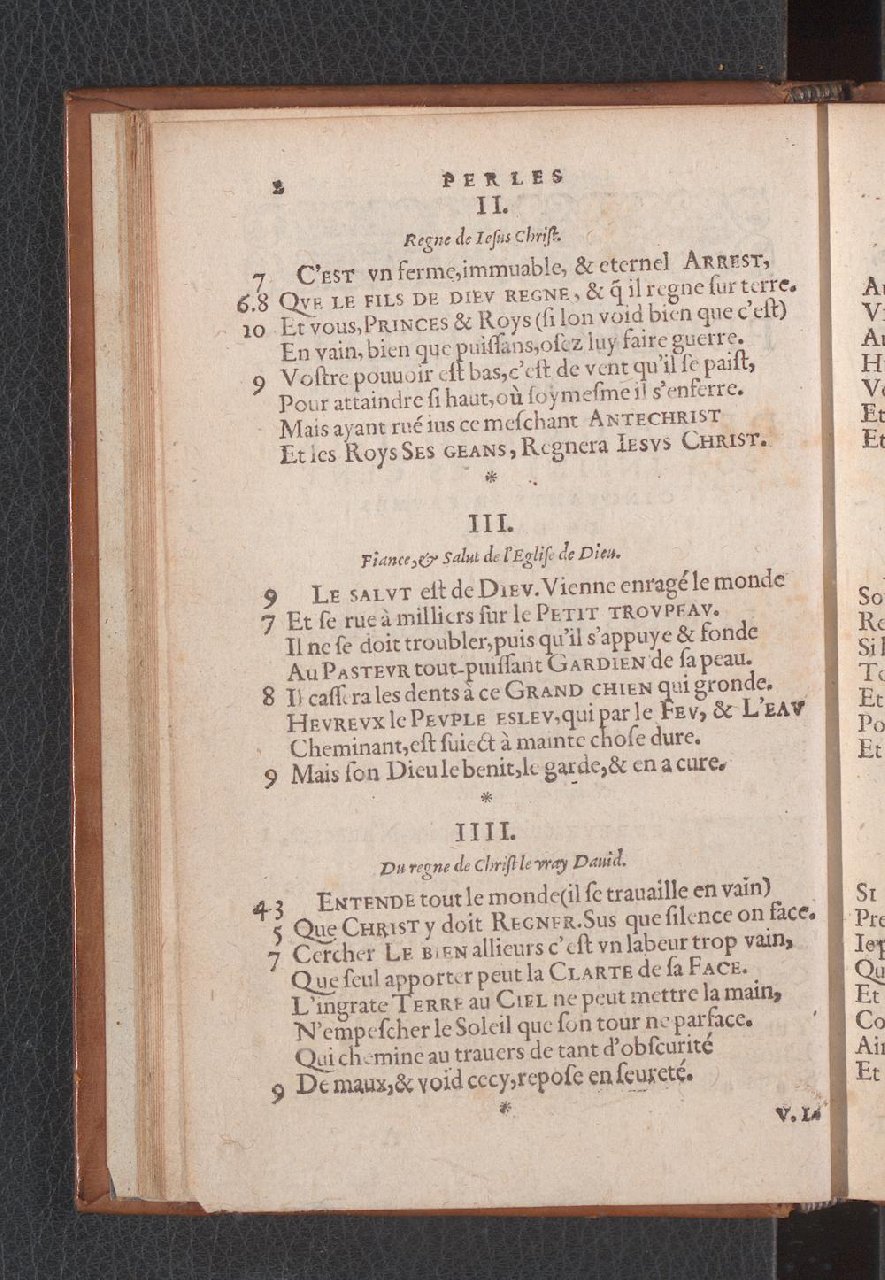 2 PERLES
II.
Regne de Iesus Christ.
7 C'EST vn ferme,immuable, & eternel ARREST,
6.8 QVE LE FILS DE DIEV REGNE, & q̃ il regne ſur terre.
10 Et vous,PRINCES & Roys (ſi lon void bien que c'eſt)
En vain, bien que puiſſans,oſez luy faire guerre.
9 Voſtre pouuoir eſt bas,c'eſt de vent qu'il ſe paiſt,
Pour attaindre ſi haut,où ſoymeſme il s'enferre.
Mais ayant rué ius ce meſchant ANTECHRIST
Et les Roys SES GEANS, Regnera IESVS CHRIST.
*
III.
Fiance,& Salut de l'Egliſe de Dieu.
9 LE SALVT eſt de DIEV. Vienne enragé le monde
7 Et ſe rue à milliers ſur le PETIT TROVPEAV.
Il ne ſe doit troubler,puis qu'il s'appuye & fonde
Au PASTEVR tout-puiſſant GARDIEN de ſa peau.
8 Il caſſera les dents à ce GRAND CHIEN qui gronde.
HEVREVX le PEVPLE ESLEV,qui par le FEV, & L'EAV
Cheminant,eſt ſuiect à mainte choſe dure.
9 Mais ſon Dieu le benit,le garde,& en a cure.
*
IIII.
Du regne de Chriſt le vray Dauid.
43 ENTENDE tout le monde(il ſe trauaille en vain)
5 Que CHRIST y doit REGNER. Sus que ſilence on face.
7 Cercher LE BIEN allieurs c'eſt vn labeur trop vain,
Que ſeul apporter peut la CLARTE de ſa FACE.
L'ingrate TERRE au CIEL ne peut mettre la main,
N'empeſcher le Soleil que ſon tour ne parface.
Qui chemine au trauers de tant d'obſcurité
9 De maux,& void cecy,repoſe en ſeureté.
*
V. L
So
Re
Si
Et
Po
Et
SI
Pre
Qu
Et
Co
Ain
Et